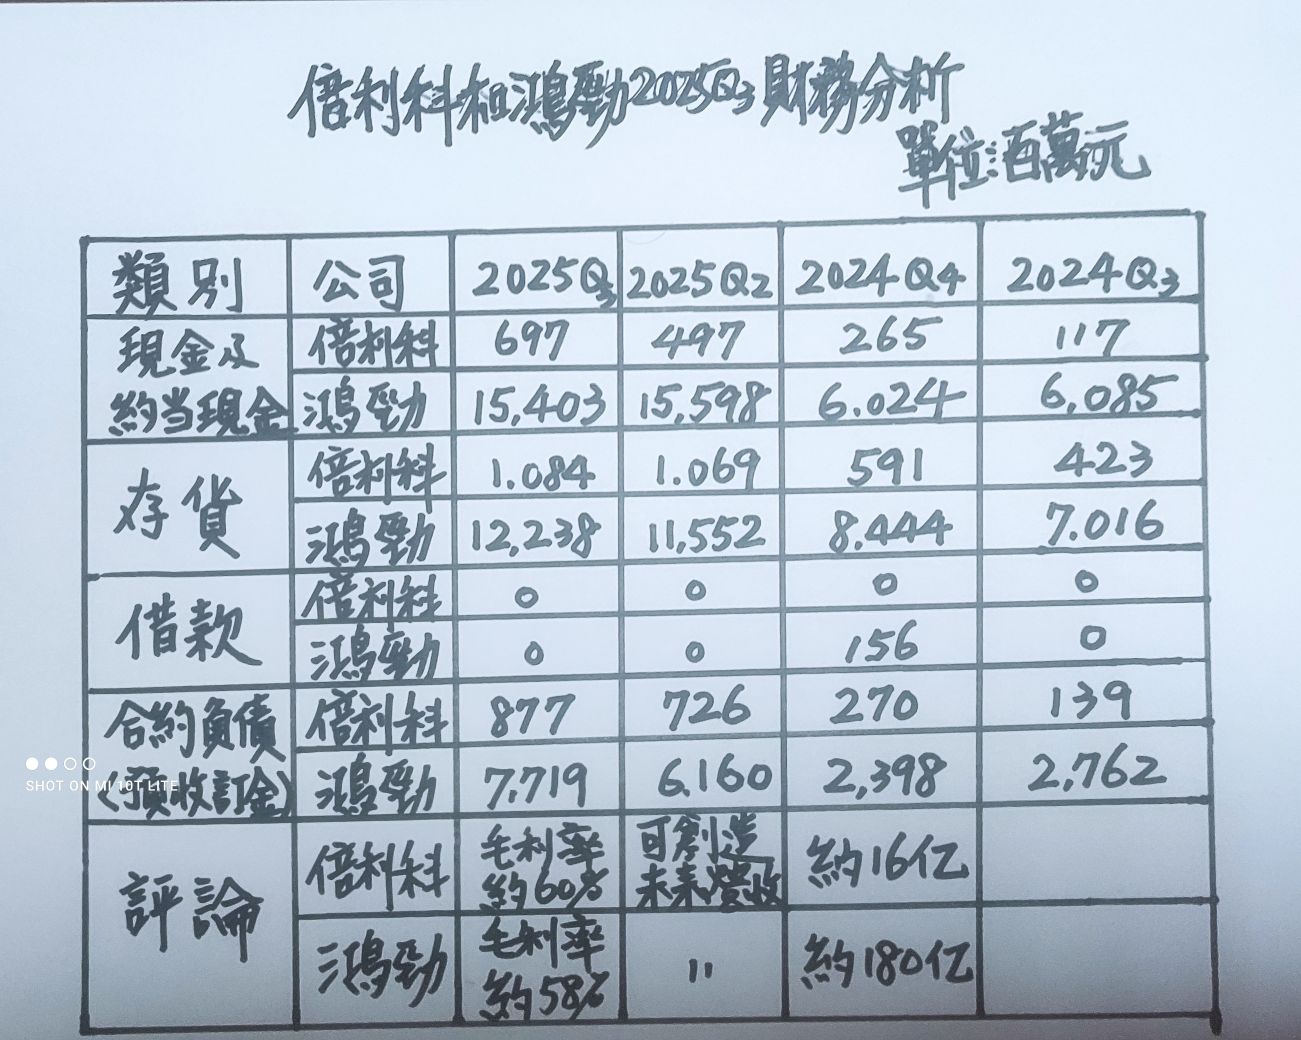 倍利科和鴻勁2025Q3財務分析
單位:百萬元
類別 公司 2025Q3 2025Q2 2024Q4 2024Q3
現金及約当現金 倍利科 697 497 265 117
鴻勁 15,403 15,598 6.024 6,085
存貨 倍利科 1.084 1.069 591 423
鴻勁 12,238 11,552 8.444 7.016
借款 倍利科 0 0 0 0
鴻勁 0 0 156 0
合約負債(預收訂金) 倍利科 877 726 270 139
鴻勁 7,719 6,160 2,398 2,762
評論 倍利科 毛利率約60% 可創造未來營收 約16亿
鴻勁 毛利率約58% 〃 約180亿
SHOT ON MI 10T LITE